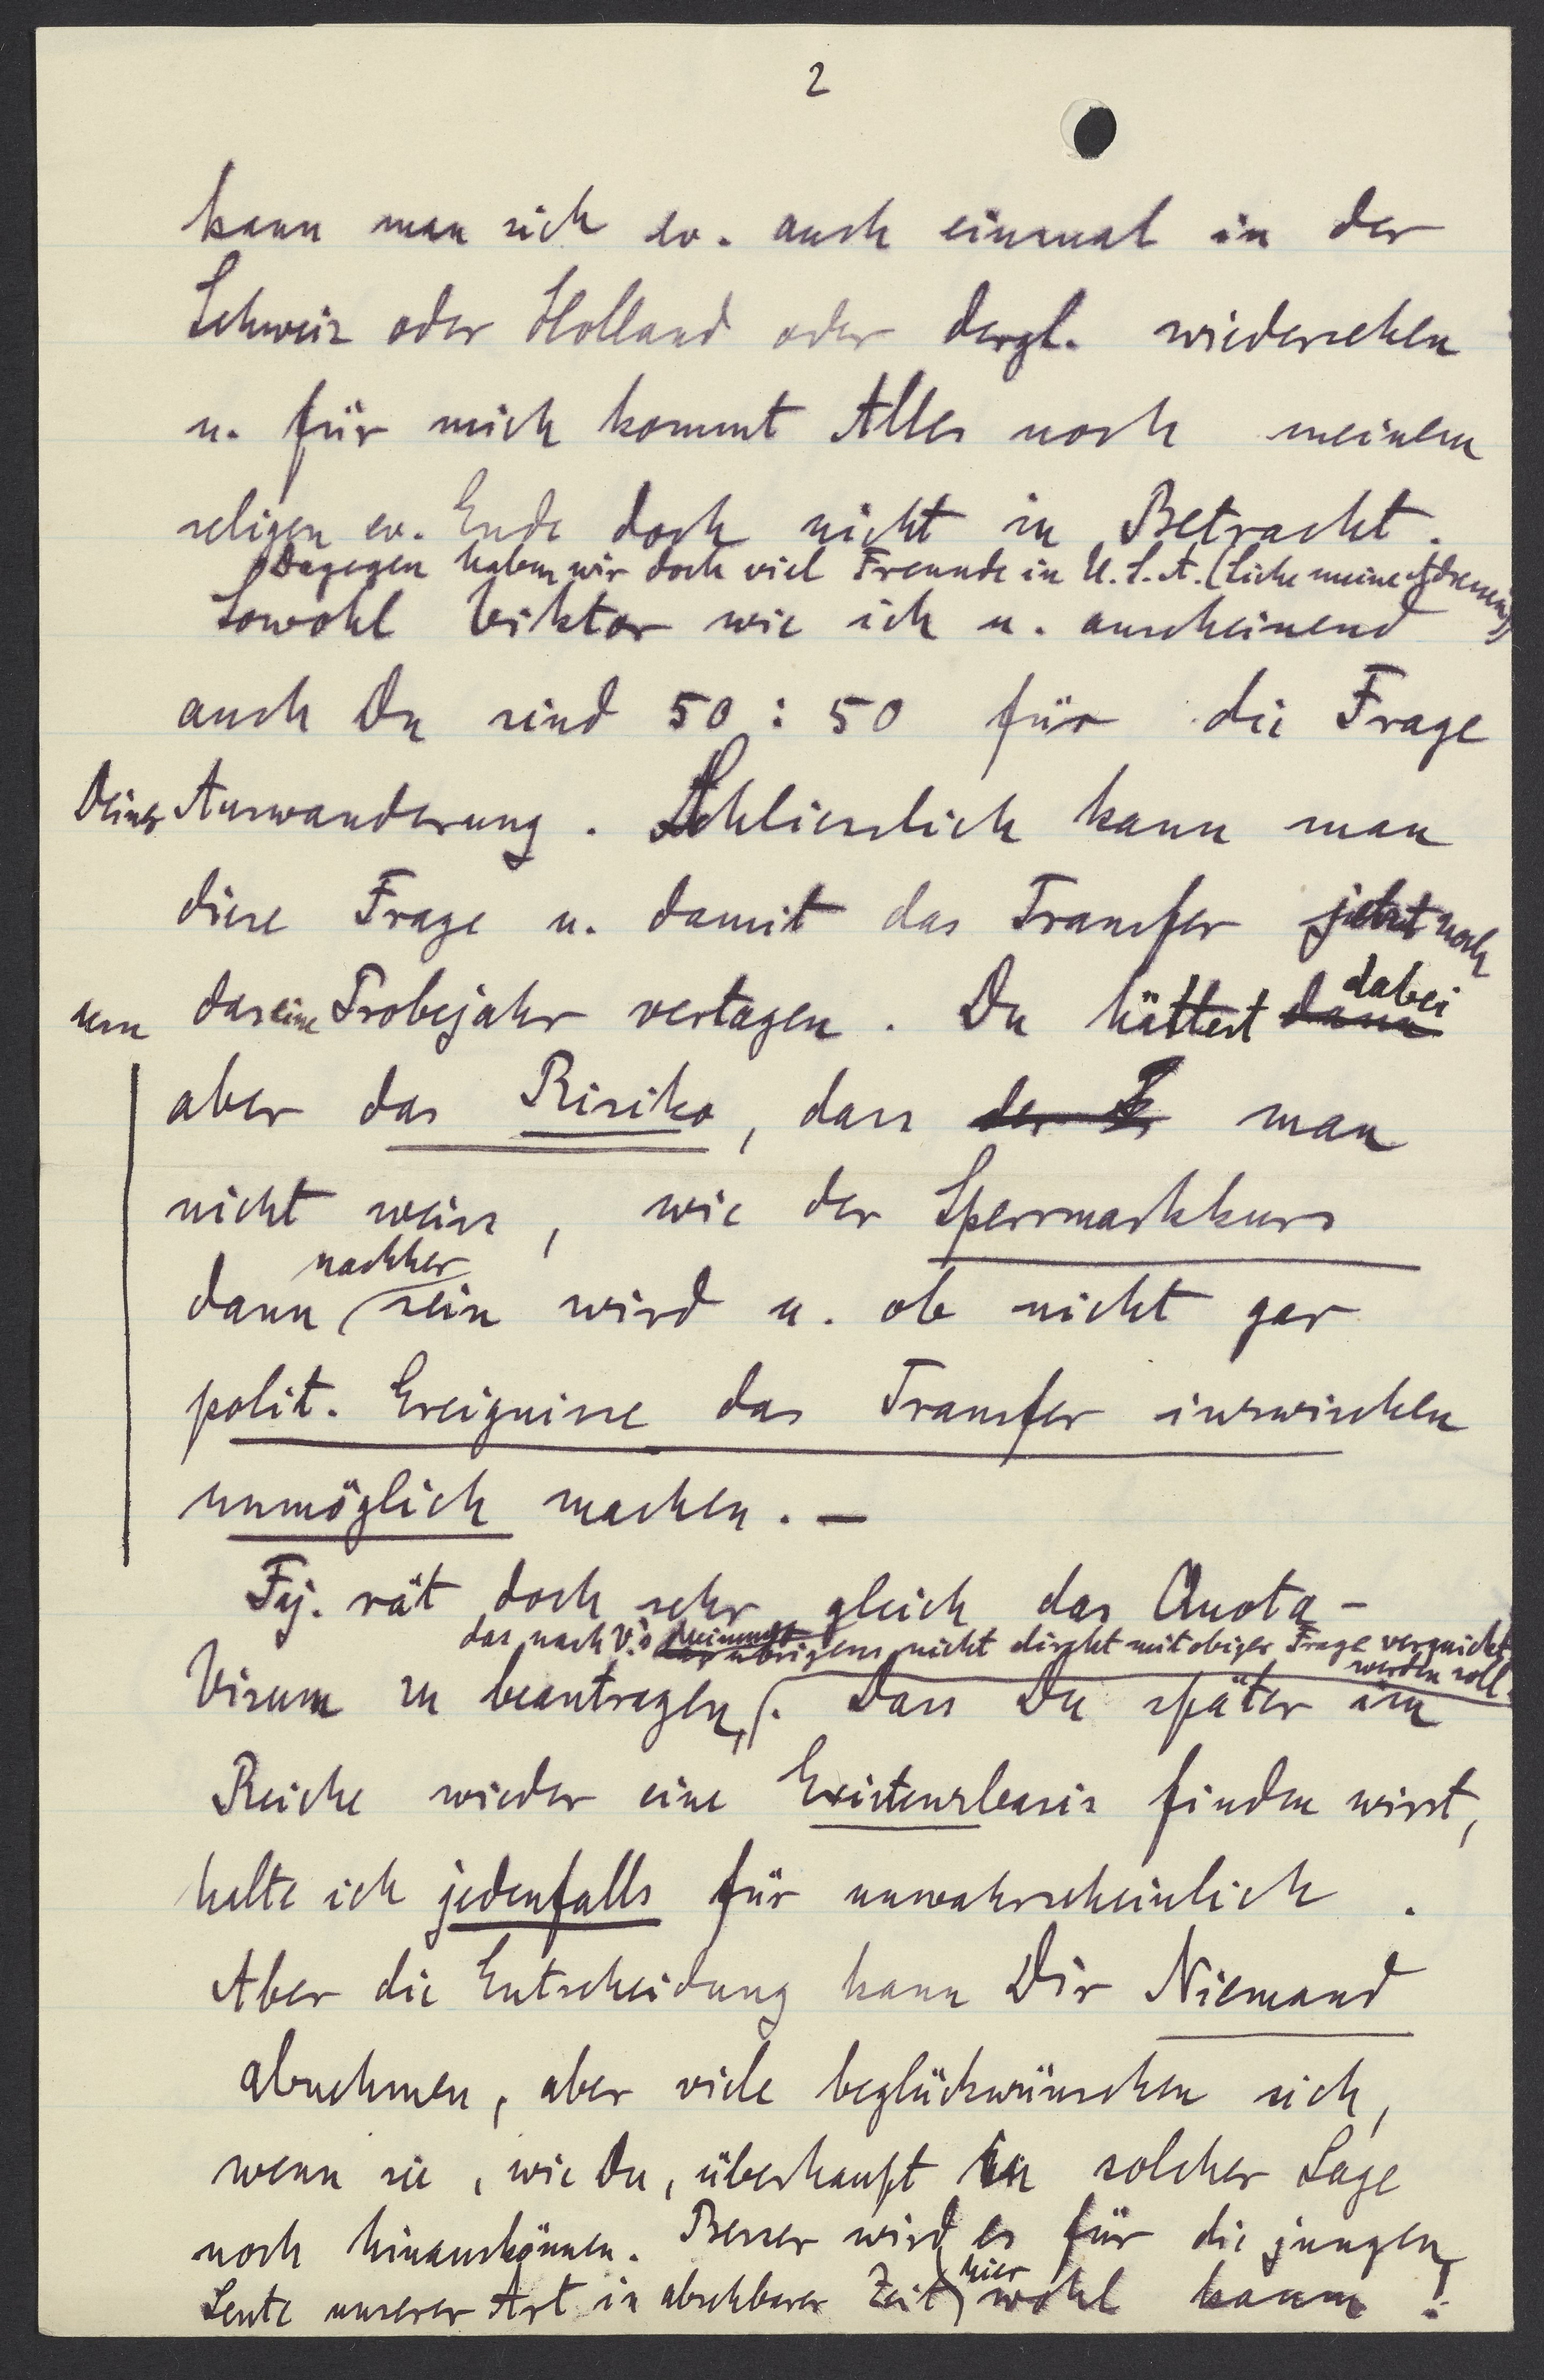 2
kann man sich ev. auch einmal in der
Schweiz oder Holland oder dergl. wiedersehen
u. für mich kommt Alles nach meinem
seligen ev. Ende doch nicht in Betracht.
Dagegen haben wir doch viel Freunde in U.S.A. (siehe meine Adressen)
Sowohl Viktor wie ich u. anscheinend
auch Du sind 50 : 50 für die Frage
Deiner Auswanderung. Schliesslich kann man
diese Frage u. damit das Transfer jetzt noch
um das eine Probejahr vertagen. Du hättest dann dabei
aber das Risiko, dass der man
nicht weiss, wie der Sperrmarkkurs
nachher
dann sein wird u. ob nicht gar
polit. Ereignisse das Transfer inzwischen
unmöglich machen. —
Faj. rät doch sehr gleich das Quota-
das nach V.'s Meinung übrigens nicht direkt mit obiger Frage verquickt
werden soll.
Visum zu beantragen,. Dass Du später im
Reiche wieder eine Existenzbasis finden wirst,
halte ich jedenfalls für unwahrscheinlich.
Aber die Entscheidung kann Dir Niemand
abnehmen, aber viele beglückwünschen sich,
wenn sie, wie Du, überhaupt in solcher Lage
noch hinauskönnen. Besser wird es für die jungen
Leute unserer Art in absehbarer Zeit hier wohl kaum!